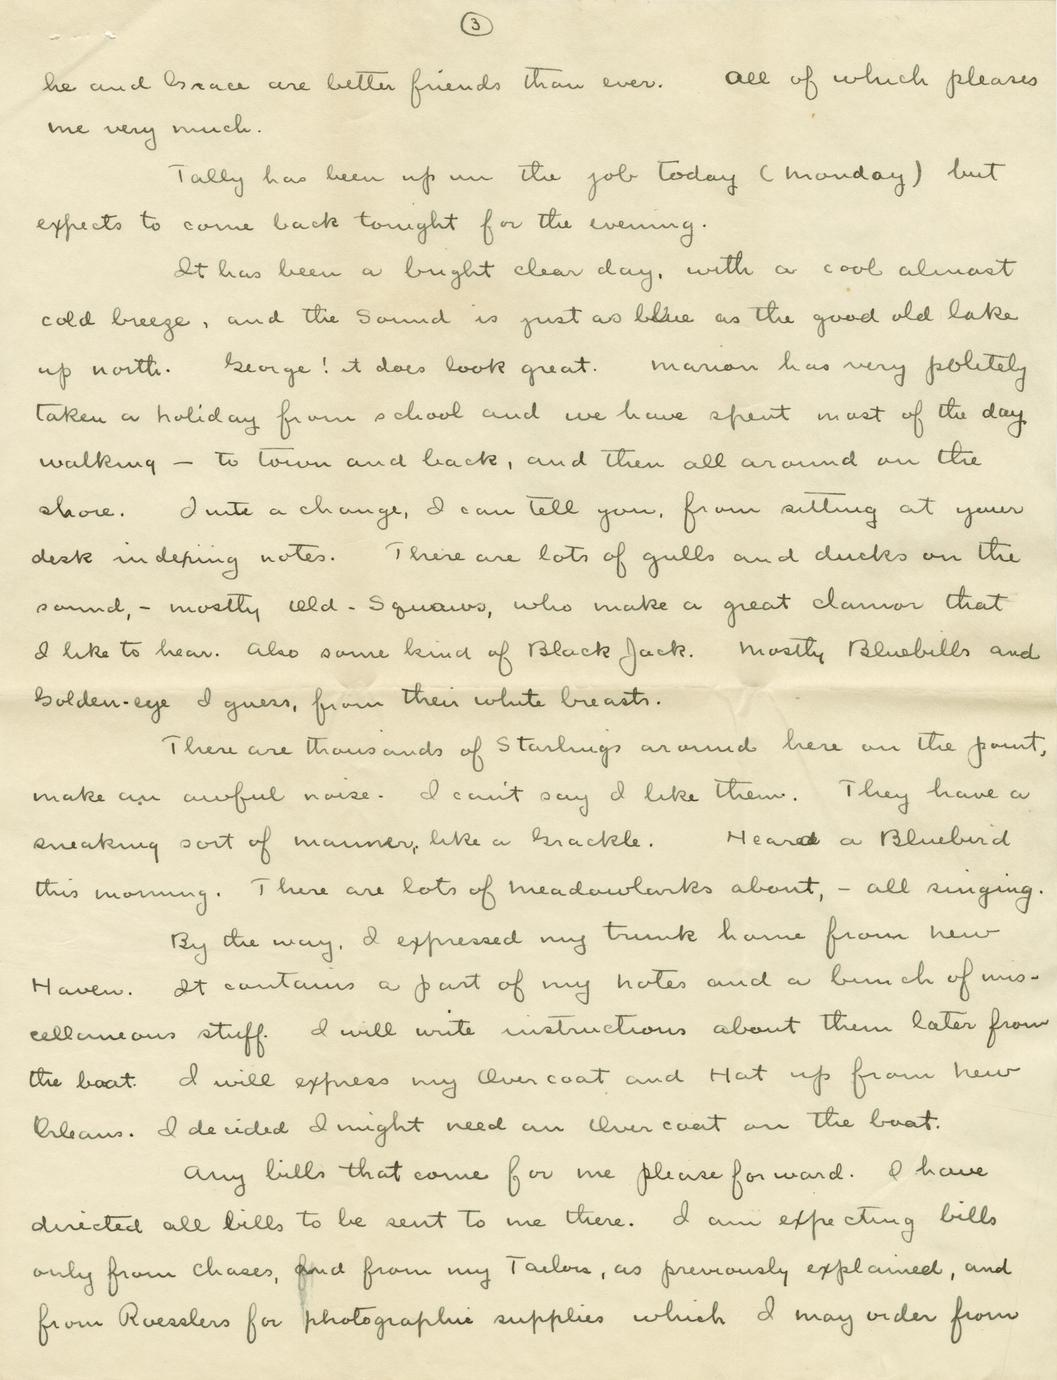 3
he and Grace are better friends than ever. All of which pleases
me very much.
Tally has been up on the job today (Monday) but
expects to come back tonight for the evening.
It has been a bright clear day, with a cool almost
cold breeze, and the Sound is just as blue as the good old lake
up north. George! it does look great. Marion has very politely
taken a holiday from school and we have spent most of the day
walking — to town and back, and then all around on the
shore. Quite a change, I can tell you, from sitting at your
desk indexing notes. There are lots of gulls and ducks on the
sound, - mostly Old-Squaws, who make a great clamor that
I like to hear. Also some kind of Black Jack. Mostly Bluebills and
Golden-eye I guess, from their white breasts.
There are thousands of Starlings around here on the point,
make an awful noise. I can't say I like them. They have a
sneaking sort of manner, like a Grackle. Heard a Bluebird
this morning. There are lots of Meadowlarks about, - all singing.
By the way, I expressed my trunk home from New
Haven. It contains a part of my notes and a bunch of mis-
cellaneous stuff. I will write instructions about them later from
the boat. I will express my Overcoat and Hat up from New
Orleans. I decided I might need an Overcoat on the boat.
Any bills that come for me please forward. I have
directed all bills to be sent to me there. I am expecting bills
only from Chases, and from my Tailors, as previously explained, and
from Roesslers for photographic supplies which I may order from